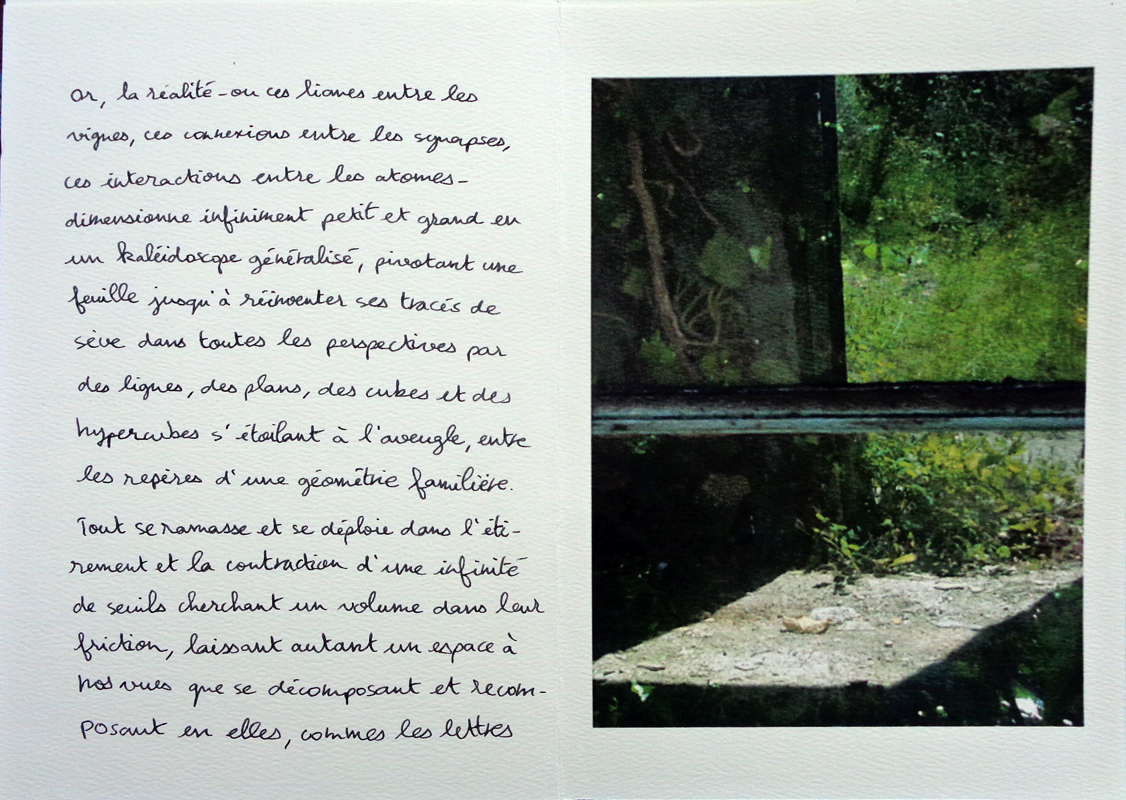 Or, la réalité - ou ces lianes entre les
vignes, ces connexions entre les synapses,
ces interactions entre les atomes -
dimensionne infiniment petit et grand en
un kaléidoscope généralisé, pivotant une
feuille jusqu'à réinventer ses tracés de
sève dans toutes les perspectives par
des lignes, des plans, des cubes et des
hypercubes s'étoilant à l'aveugle, entre
les repères d'une géométrie familière.
Tout se ramasse et se déploie dans l'éti-
rement et la contraction d'une infinité
de seuils cherchant un volume dans leur
friction, laissant autant un espace à
nos vues que se décomposant et recom-
posant en elles, commes les lettres